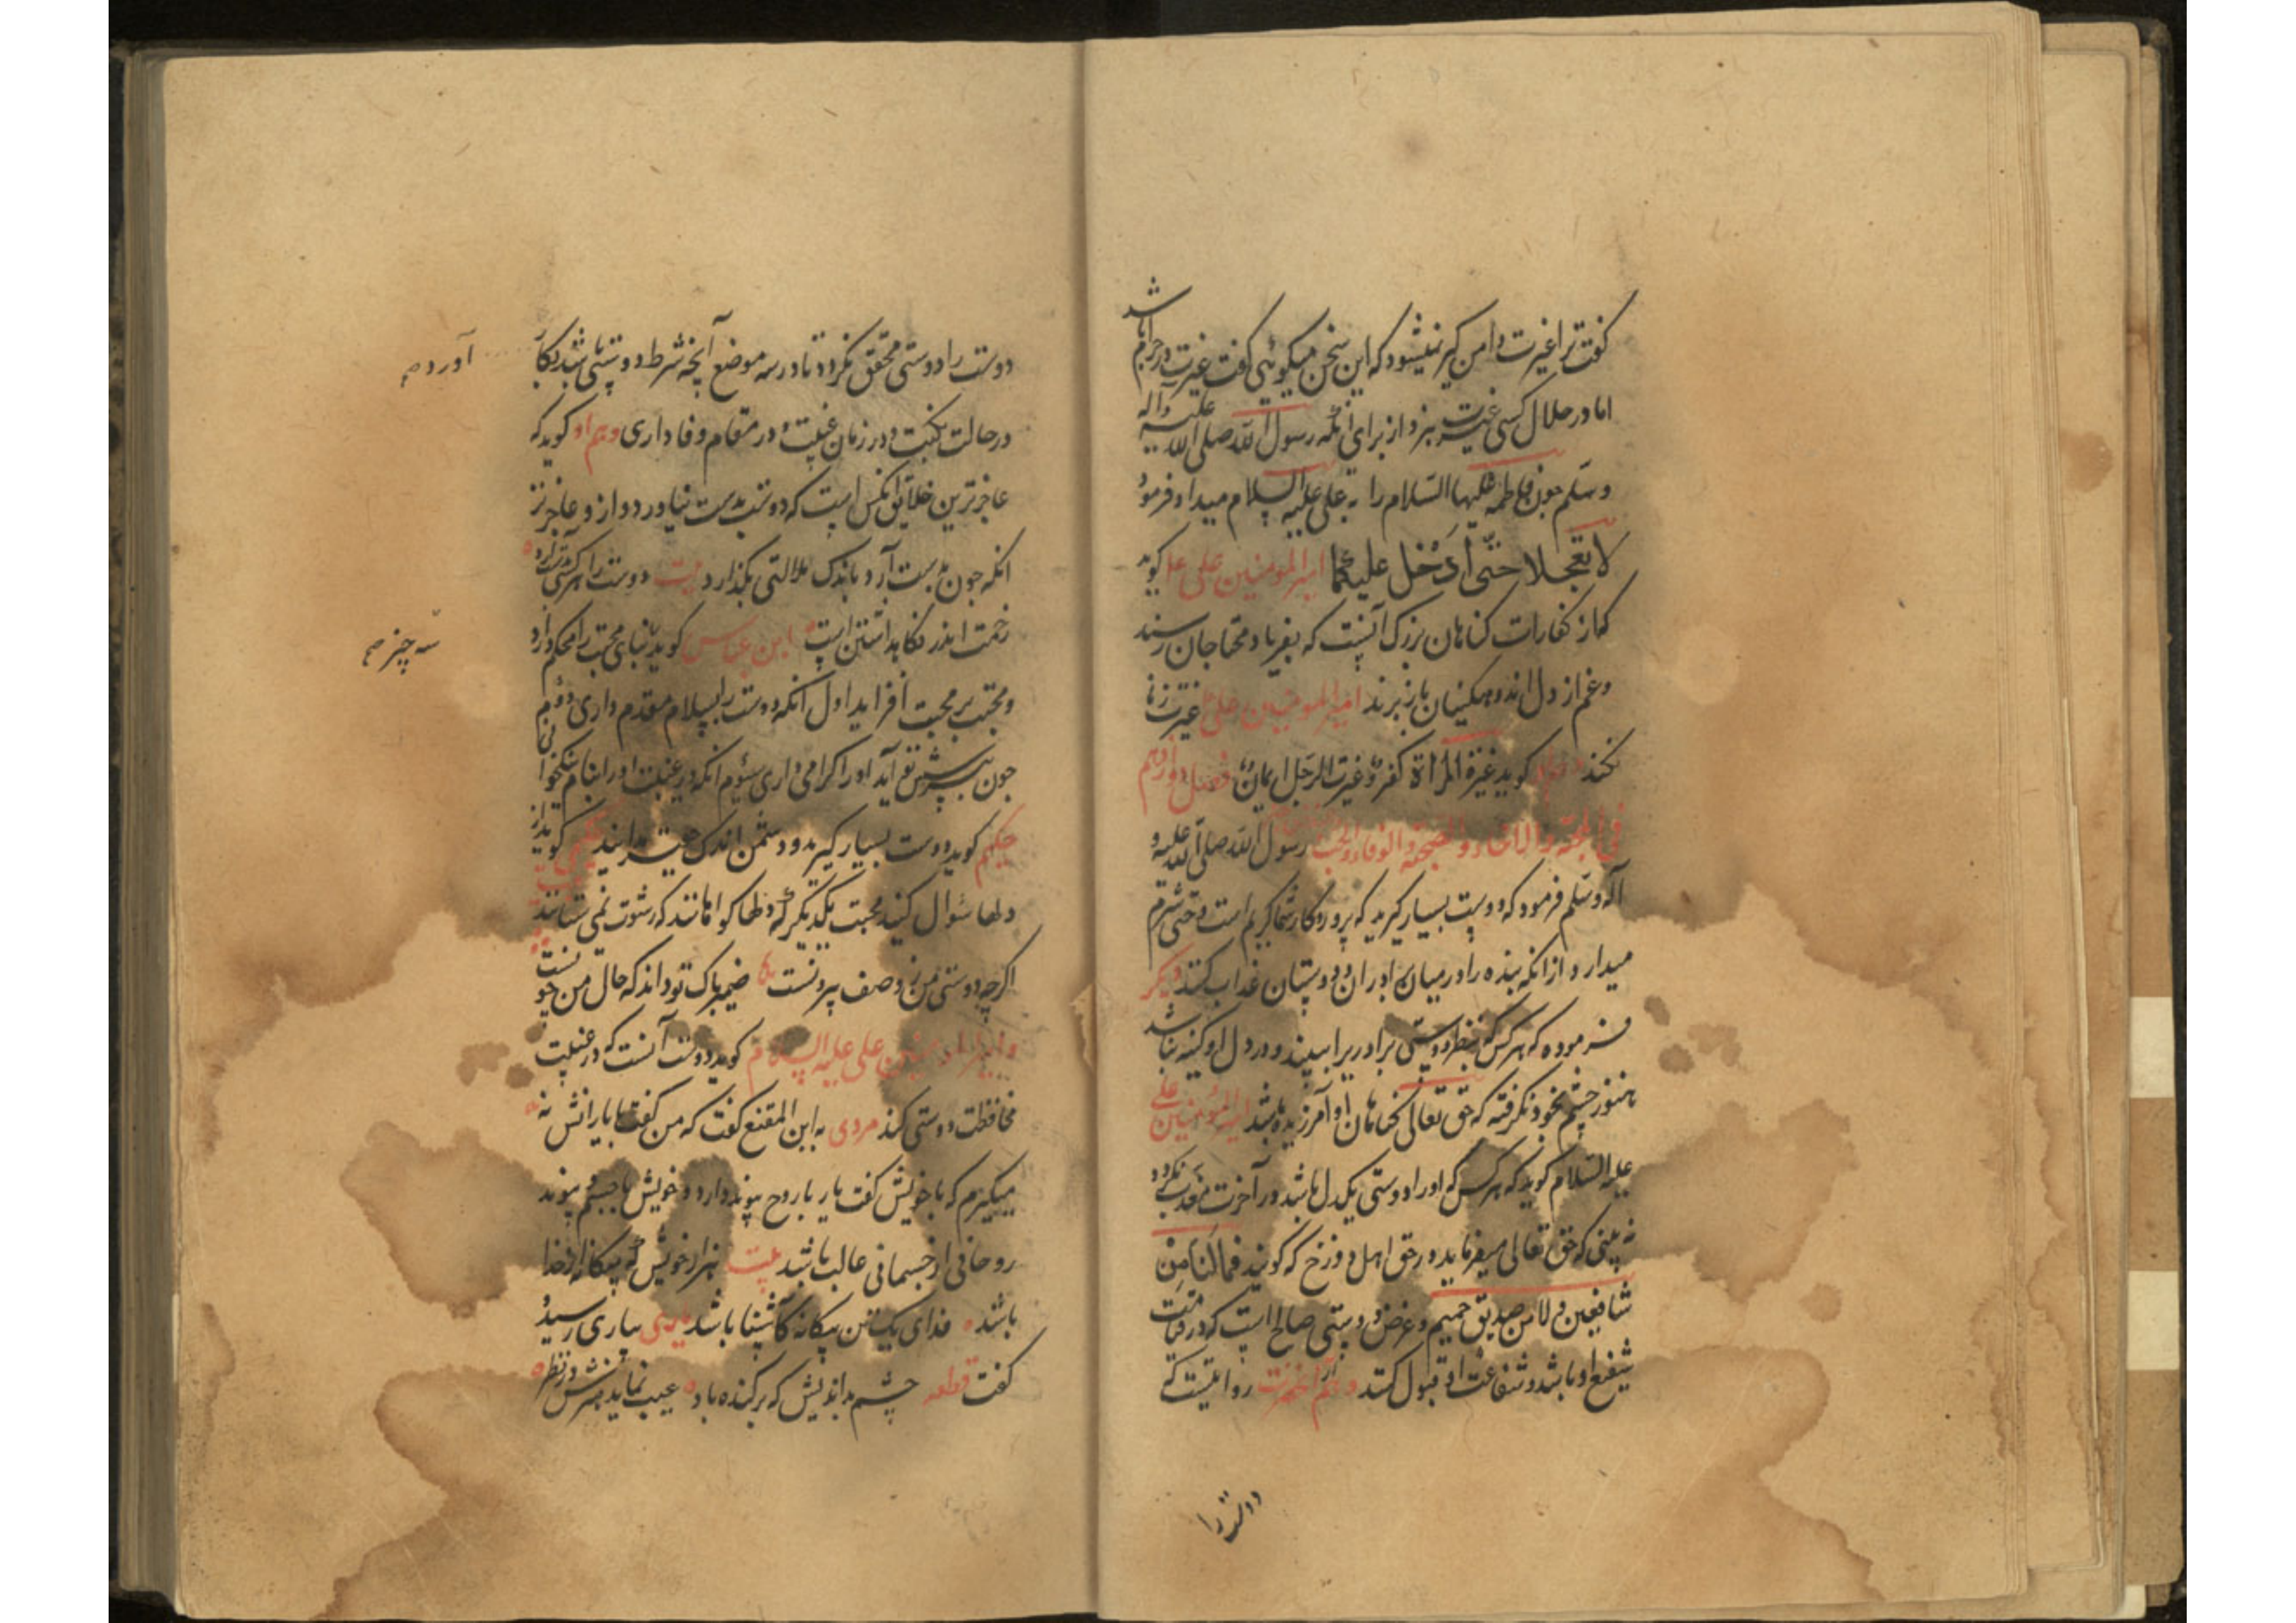 گفت ترا غیرت دامن گیر نمیشود که این سخن میگوئی گفت غیرت در حرام باشد
اما در حلال کسی غیرت نبرد از برای انکه رسول الله صلی الله علیه وآله
وسلم چون فاطمه علیها السلام را به علی علیه السلام میداد فرمود
لا تعجلا حتی ادخل علیکما امیرالمومنین علی ع گوید
که از کفارات کناهان بزرک آنست که بفریاد محتاجان رسند
وغم از دل اندوهکینان باز برند امیرالمومنین علی غیرت زنا
نکند گوید غیرة المراة کفر و غیرت الرجل ایمان فصل دوازدهم
فی المحبة والوفا رسول الله صلی الله علیه و
آله وسلم فرمود که دوست بسیار گیرید که پروردکار شما کریم است و حتی شرم
میدارد از انکه بنده را در میان برادران و دوستان عذاب کند دیگر
فرموده که هر کس که بنظر دوستی برادریرا ببیند و در دل او کینه نباشد
هنوز چشم بخود نکرفته که حق تعالی کناهان او آمرزیده باشد امیرالمؤمنین علی
علیه السلام گوید که هر کس که او را دوستی یکدل باشد در آخرت
نه بینی که حق تعالی میفرماید در حق اهل دوزخ که گویند فما لنا من
شافعین ولا من صدیق حمیم و غرض دوستی صالح است که در قیامت
شفیع او باشد و شفاعت او قبول کنند وهم از آنحضرت روایتست که
دوست را
دوست را دوستی محقق نکردد تا در سه موضع آنچه شرط دوستی باشد بکار
آورد صح
در حالت نکبت و در زمان غیبت و در مقام وفاداری وهم او گوید که
عاجزترین خلایق انکس است که دوست بدست نیاورد و از و عاجزتر
انکه چون بدست آرد باندک ملالتی بگذارد بیت دوست را هر کسی بدست آرد
زحمت اندر نکاهداشتن است ابن عباس گوید بنای محبت را محکم دارد
سه چیز صح
و محبت بر محبت افزاید اول انکه دوست را بسلام مقدم داری دوم
چون به پیش تو آید او را کرامی داری سیوم انکه در غیبت او را بنام نیکو
حکیم گوید دوست بسیار گیرید و دشمن اندک حکیمی گوید از
دلها سوال کنید محبت یکدیکر که دلها کواهانند که رشوت نمی ستانند بیت
اکر چه دوستی من ز وصف بیرونست ضمیر پاک تو داند که حال من چونست
و امیرالمومنین علی علیه السلام گوید دوست آنست که در غیبت
محافظت دوستی کند مردی به ابن المقنع گفت که من گفت با یارانش نه
میگیرم که با خویش گفت یار با روح پیوند دارد و خویش با جسم و پیوند
روحانی از جسمانی غالب باشد بیت هزار خویش که بیکانه از خدا
باشد فدای یک تن بیکانه کآشنا باشد یاری بیاری رسید
گفت قطعه چشم بد اندیش که برکنده باد عیب نماید هنرش در نظر